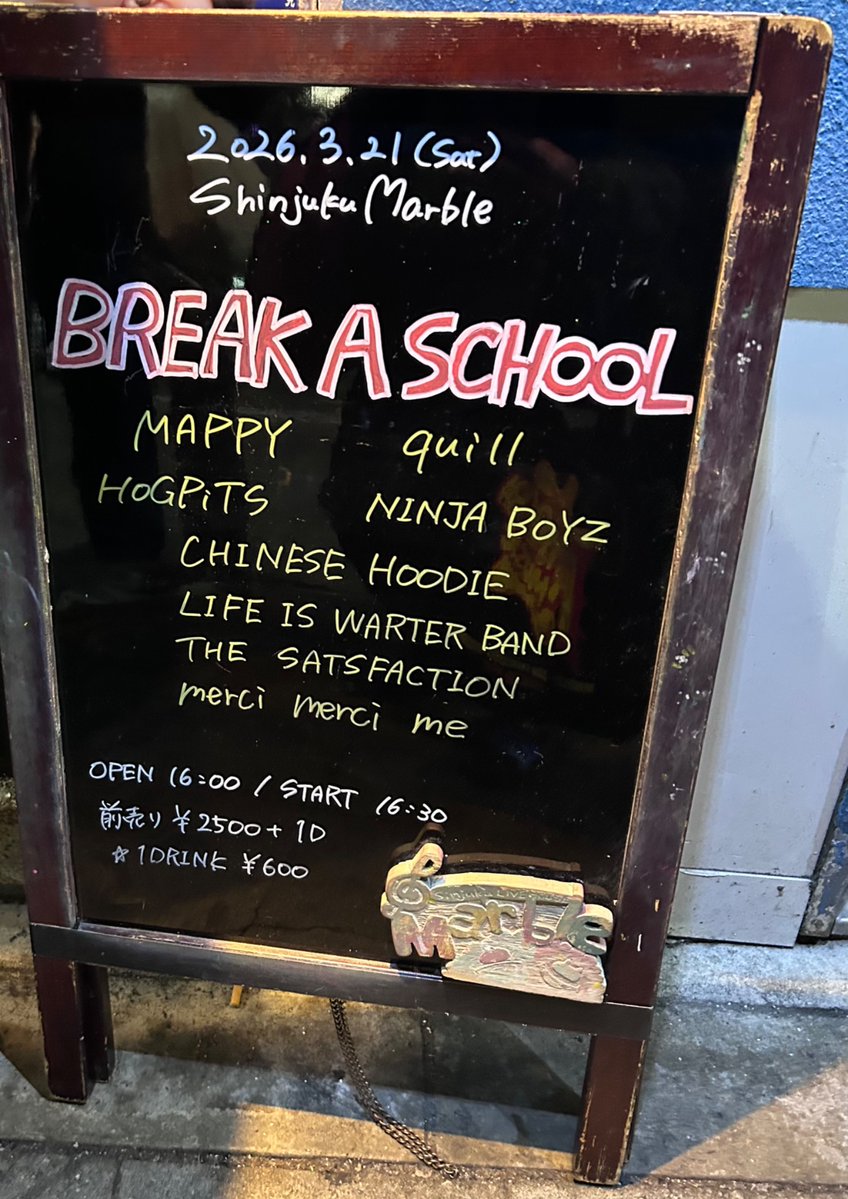 2026.3.21 (Sat)
Shinjuku Marble
BREAK A SCHOOL
MAPPY quill
HOGPiTS NINJA BOYZ
CHINESE HOODIE
LIFE IS WARTER BAND
THE SATSFACTION
merci merci me
OPEN 16:00 / START 16:30
前売り ¥2500 + 1D
☆ 1DRINK ¥600
Marble